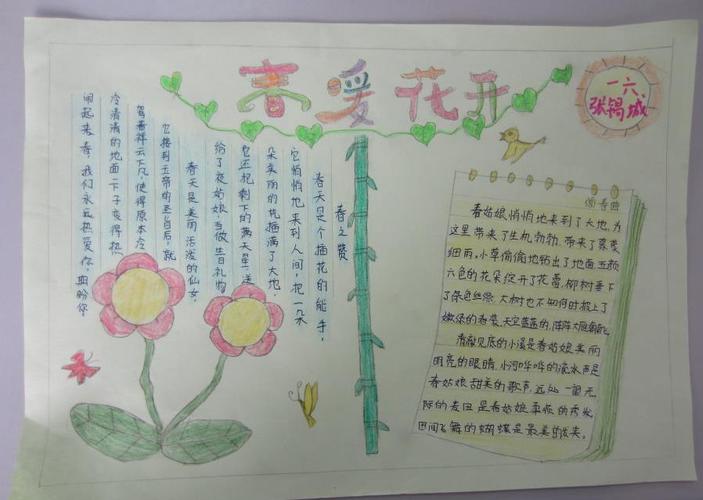 春暖花开
一六、
张锡城
春之赞
春天是个插花的能手,
它悄悄地来到人间,把一朵
朵美丽的花插满了大地,
它还把剩下的满天星送
给了夜姑娘当做生日礼物
春天是美丽活泼的仙女,
它接到玉帝的圣旨后,就
驾着祥云下凡,使得原本冷
冷清清的地面一下子变得热
闹起来。春,我们永远热爱你,期盼你.
春曲
春姑娘悄悄地来到了大地,为
这里带来了生机勃勃,带来了蒙蒙
细雨。小草偷偷地钻出了地面,五颜
六色的花朵绽开了花蕾,柳树垂下
了绿色丝绦,大树也不知何时披上了
嫩绿的春装,天空蓝蓝的,阵阵大雁朝北
清澈见底的小溪是春姑娘美丽
明亮的眼睛,小河哗哗的流水声是
春姑娘甜美的歌声,远处一望无
际的麦田是春姑娘的秀发,
田间飞舞的蝴蝶是最美的发夹。